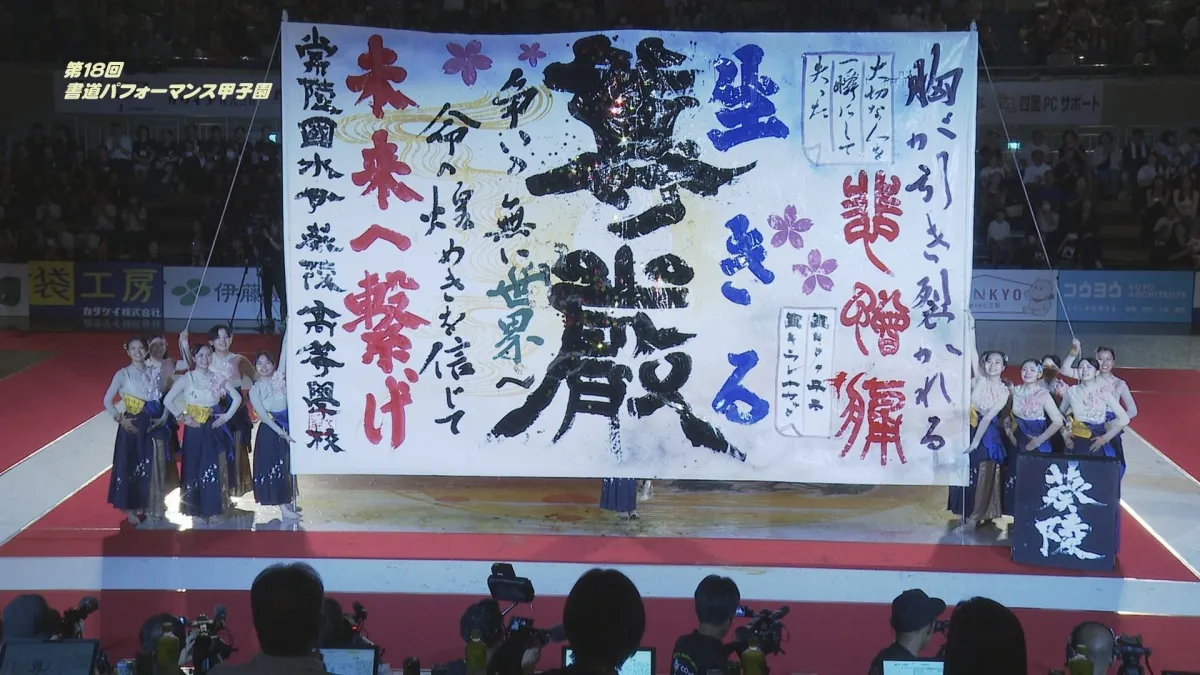 第18回
書道パフォーマンス甲子園
胸が引き裂かれる
大切な人を
一瞬にして
失った
悲しみ
憎
痛
生きる
尊厳
争いの無い世界へ
命の煌めきを信じて
未来へ繋げ
常陸國水戸葵陵高等學校
四国PCサポート
袋工房
カタケイ株式会社
伊藤
NKYO
コウヨウ
KOYO
ARCHITECTS
葵陵